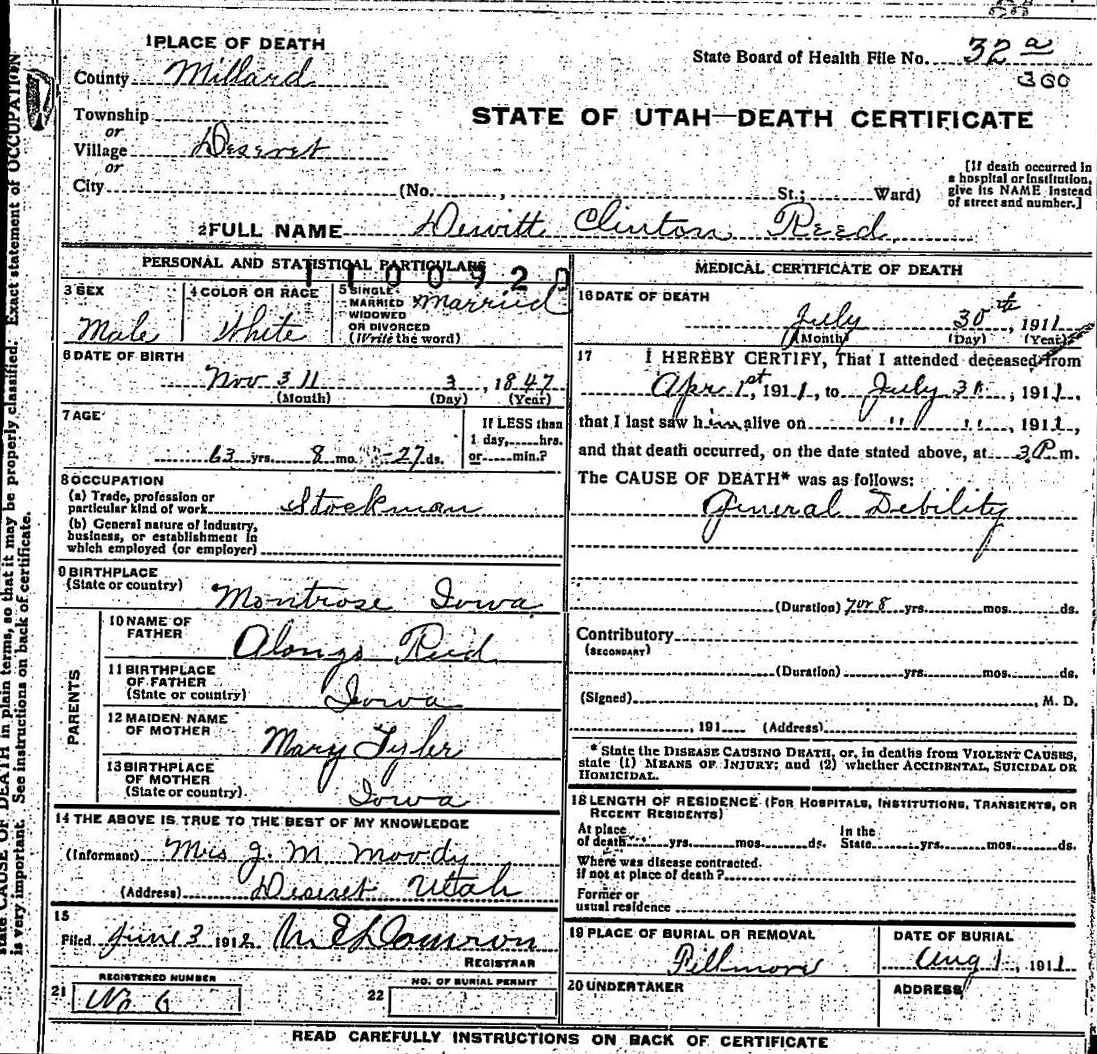 1 PLACE OF DEATH
County Millard
State Board of Health File No. 32 a
360
Township
or
Village Deseret
or
City (No. , St.; Ward)
STATE OF UTAH—DEATH CERTIFICATE
[If death occurred in
a hospital or institution,
give its NAME instead
of street and number.]
2 FULL NAME Dewitt Clinton Reed
PERSONAL AND STATISTICAL PARTICULARS
3 SEX
Male
4 COLOR OR RACE
White
5 SINGLE
MARRIED
WIDOWED
OR DIVORCED
(Write the word)
Married
6 DATE OF BIRTH
Nov 3 11 3, 1847
(Month) (Day) (Year)
7 AGE
63 yrs. 8 mo. 27 ds.
If LESS than
1 day, hrs.
or min.?
8 OCCUPATION
(a) Trade, profession or
particular kind of work Stockman
(b) General nature of industry,
business, or establishment in
which employed (or employer)
9 BIRTHPLACE
(State or country) Montrose Iowa
PARENTS
10 NAME OF
FATHER Alonzo Reed
11 BIRTHPLACE
OF FATHER
(State or country) Iowa
12 MAIDEN NAME
OF MOTHER Mary Tyler
13 BIRTHPLACE
OF MOTHER
(State or country) Iowa
14 THE ABOVE IS TRUE TO THE BEST OF MY KNOWLEDGE
(Informant) Mrs J. M. Moody
(Address) Deseret Utah
15
Filed June 3 1912
REGISTRAR
REGISTERED NUMBER
21 No. 6
NO. OF BURIAL PERMIT
22
MEDICAL CERTIFICATE OF DEATH
16 DATE OF DEATH
July 30th, 1911
(Month) (Day) (Year)
17 I HEREBY CERTIFY, That I attended deceased from
Apr 1st, 1911, to July 30, 1911,
that I last saw him alive on " ", 1911,
and that death occurred, on the date stated above, at 3 P. m.
The CAUSE OF DEATH* was as follows:
General Debility
(Duration) 7 or 8 yrs. mos. ds.
Contributory
(SECONDARY)
(Duration) yrs. mos. ds.
(Signed) , M. D.
, 191 (Address)
* State the DISEASE CAUSING DEATH, or, in deaths from VIOLENT CAUSES,
state (1) MEANS OF INJURY; and (2) whether ACCIDENTAL, SUICIDAL OR
HOMICIDAL.
18 LENGTH OF RESIDENCE (FOR HOSPITALS, INSTITUTIONS, TRANSIENTS, OR
RECENT RESIDENTS)
At place
of death yrs. mos. ds.
In the
State yrs. mos. ds.
Where was disease contracted.
if not at place of death?
Former or
usual residence
19 PLACE OF BURIAL OR REMOVAL
Fillmore
DATE OF BURIAL
Aug 1, 1911
20 UNDERTAKER
ADDRESS
READ CAREFULLY INSTRUCTIONS ON BACK OF CERTIFICATE
state CAUSE OF DEATH in plain terms, so that it may be properly classified. Exact statement of OCCUPATION
is very important. See instructions on back of certificate.